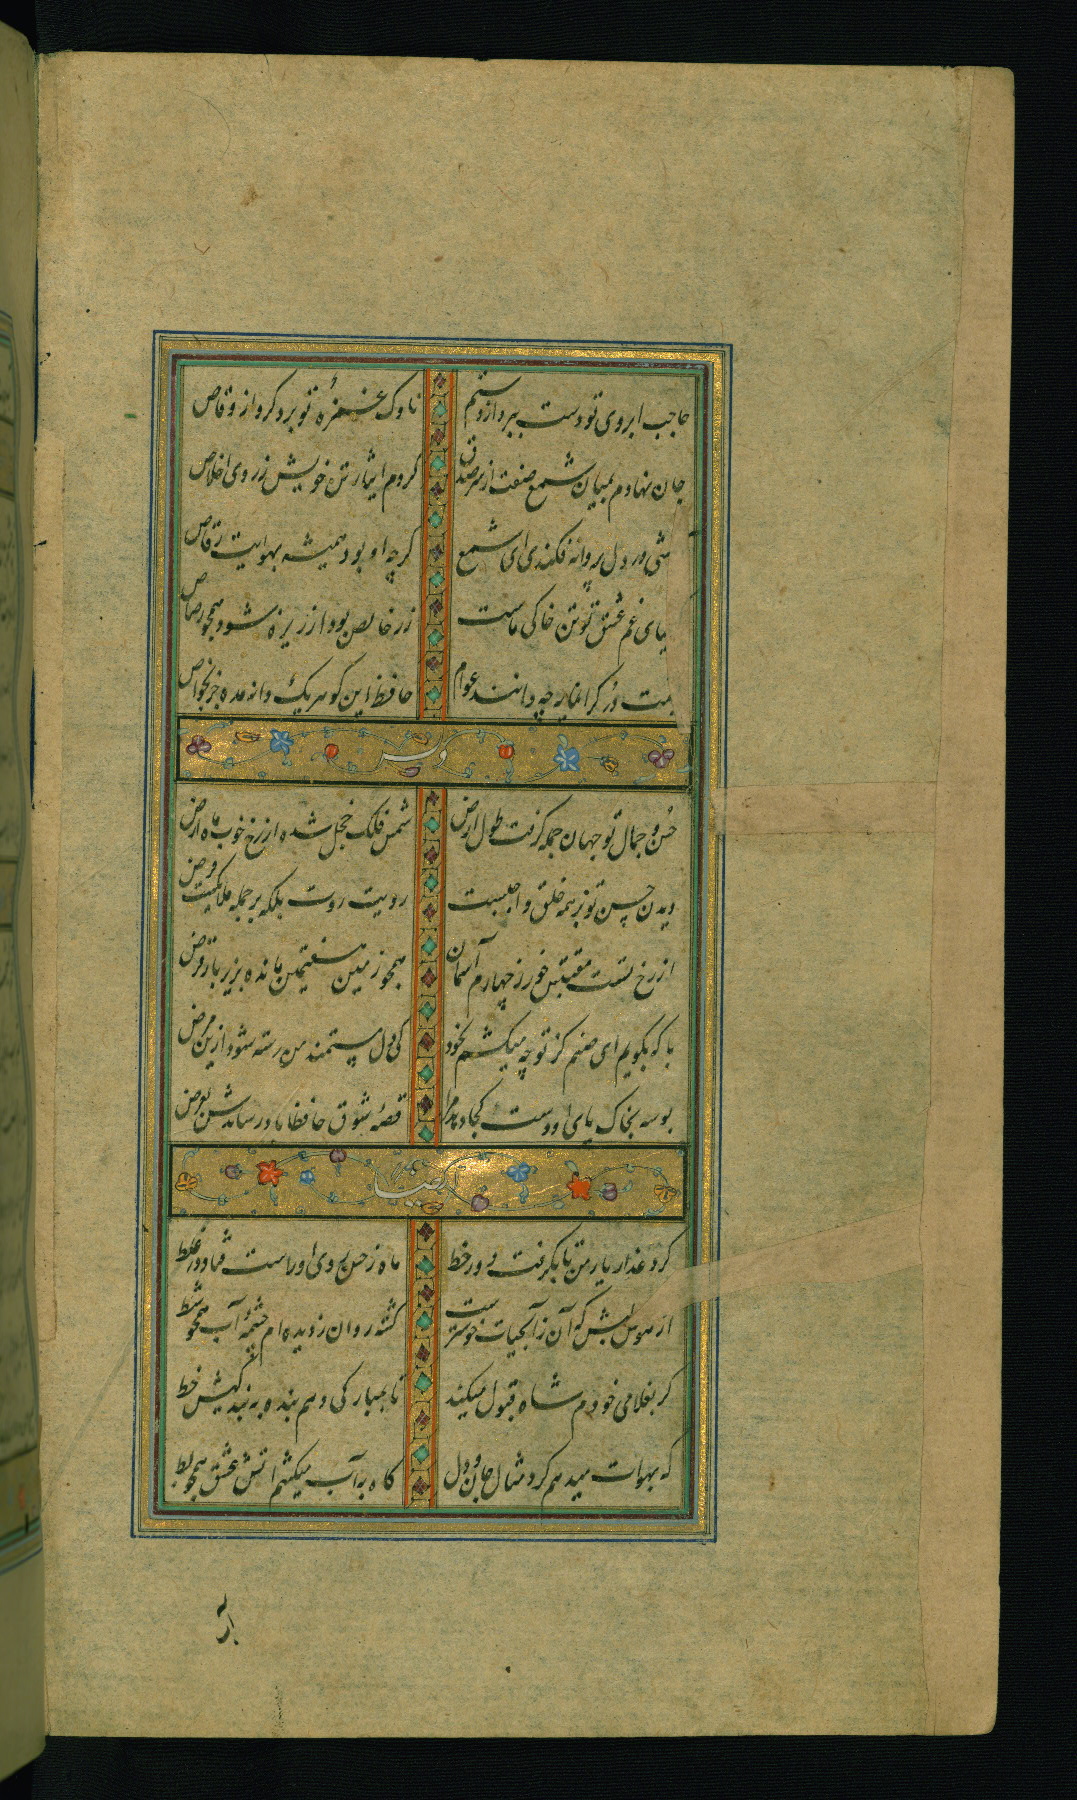 حاجب ابروی تو دست ببرد از دستم
ناوک غمزه تو برد کرو از وقاص
جان نهادم بمیان شمع صفت از سر صدق
کردم ایثار تن خویش ز روی اخلاص
در دل پروانه فکندی ای شمع
کرچه او بود همیشه بهوایت رقاص
یای غم عشق تو تن خاکی ماست
زر خالص بود ار زیره شود همچو رصاص
مت در کرانمایه چه دانند عوام
حافظ این کوهر یک دانه مده جز بخواص
وله
حسن و جمال تو جهان جمله کرفت طول ارض
شمس فلک خجل شده از رخ خوب ماه ارض
دیدن حسن تو بر همه خلق واجبست
رویت روت بلکه بر جمله ملایکست فرض
از رخ تست مقتبس خور ز چهارم آسمان
همچو زمین هفتمین مانده بزیر بار قرض
با که بگویم ای صنم کز تو چه میکشم بخود
کی دل مستمند من رسته شود ازین مرض
بوسه بخاک پای او دست کجا دهد مرا
قصه شوق حافظا باد رساندش بعرض
ایضا
کرد عذار یار من تا بگرفت دور خط
ماه ز حسن روی او راست فتاد در غلط
از هوس لبش که آن ز آب حیات خوشترست
کشته روان ز دیده ام چشمه آب همچو شط
کر بغلامی خودم شاه قبول میکند
تا بمبارکی دهم بنده به بندکیش خط
که بهوات میدهم کرد مثال جان و دل
کاه به آب میکشم اتش عشق همچو بط